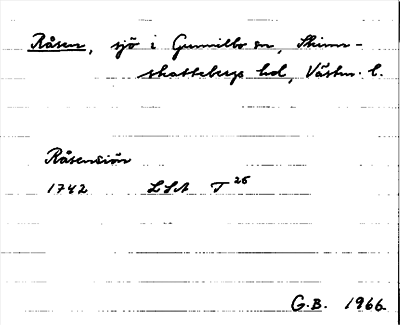 Råsen, sjö i Gunnilbo sn, Skinn-
skattebergs hd, Västm. l.
Råsensiön
1742 LSA T 26
G.B. 1966